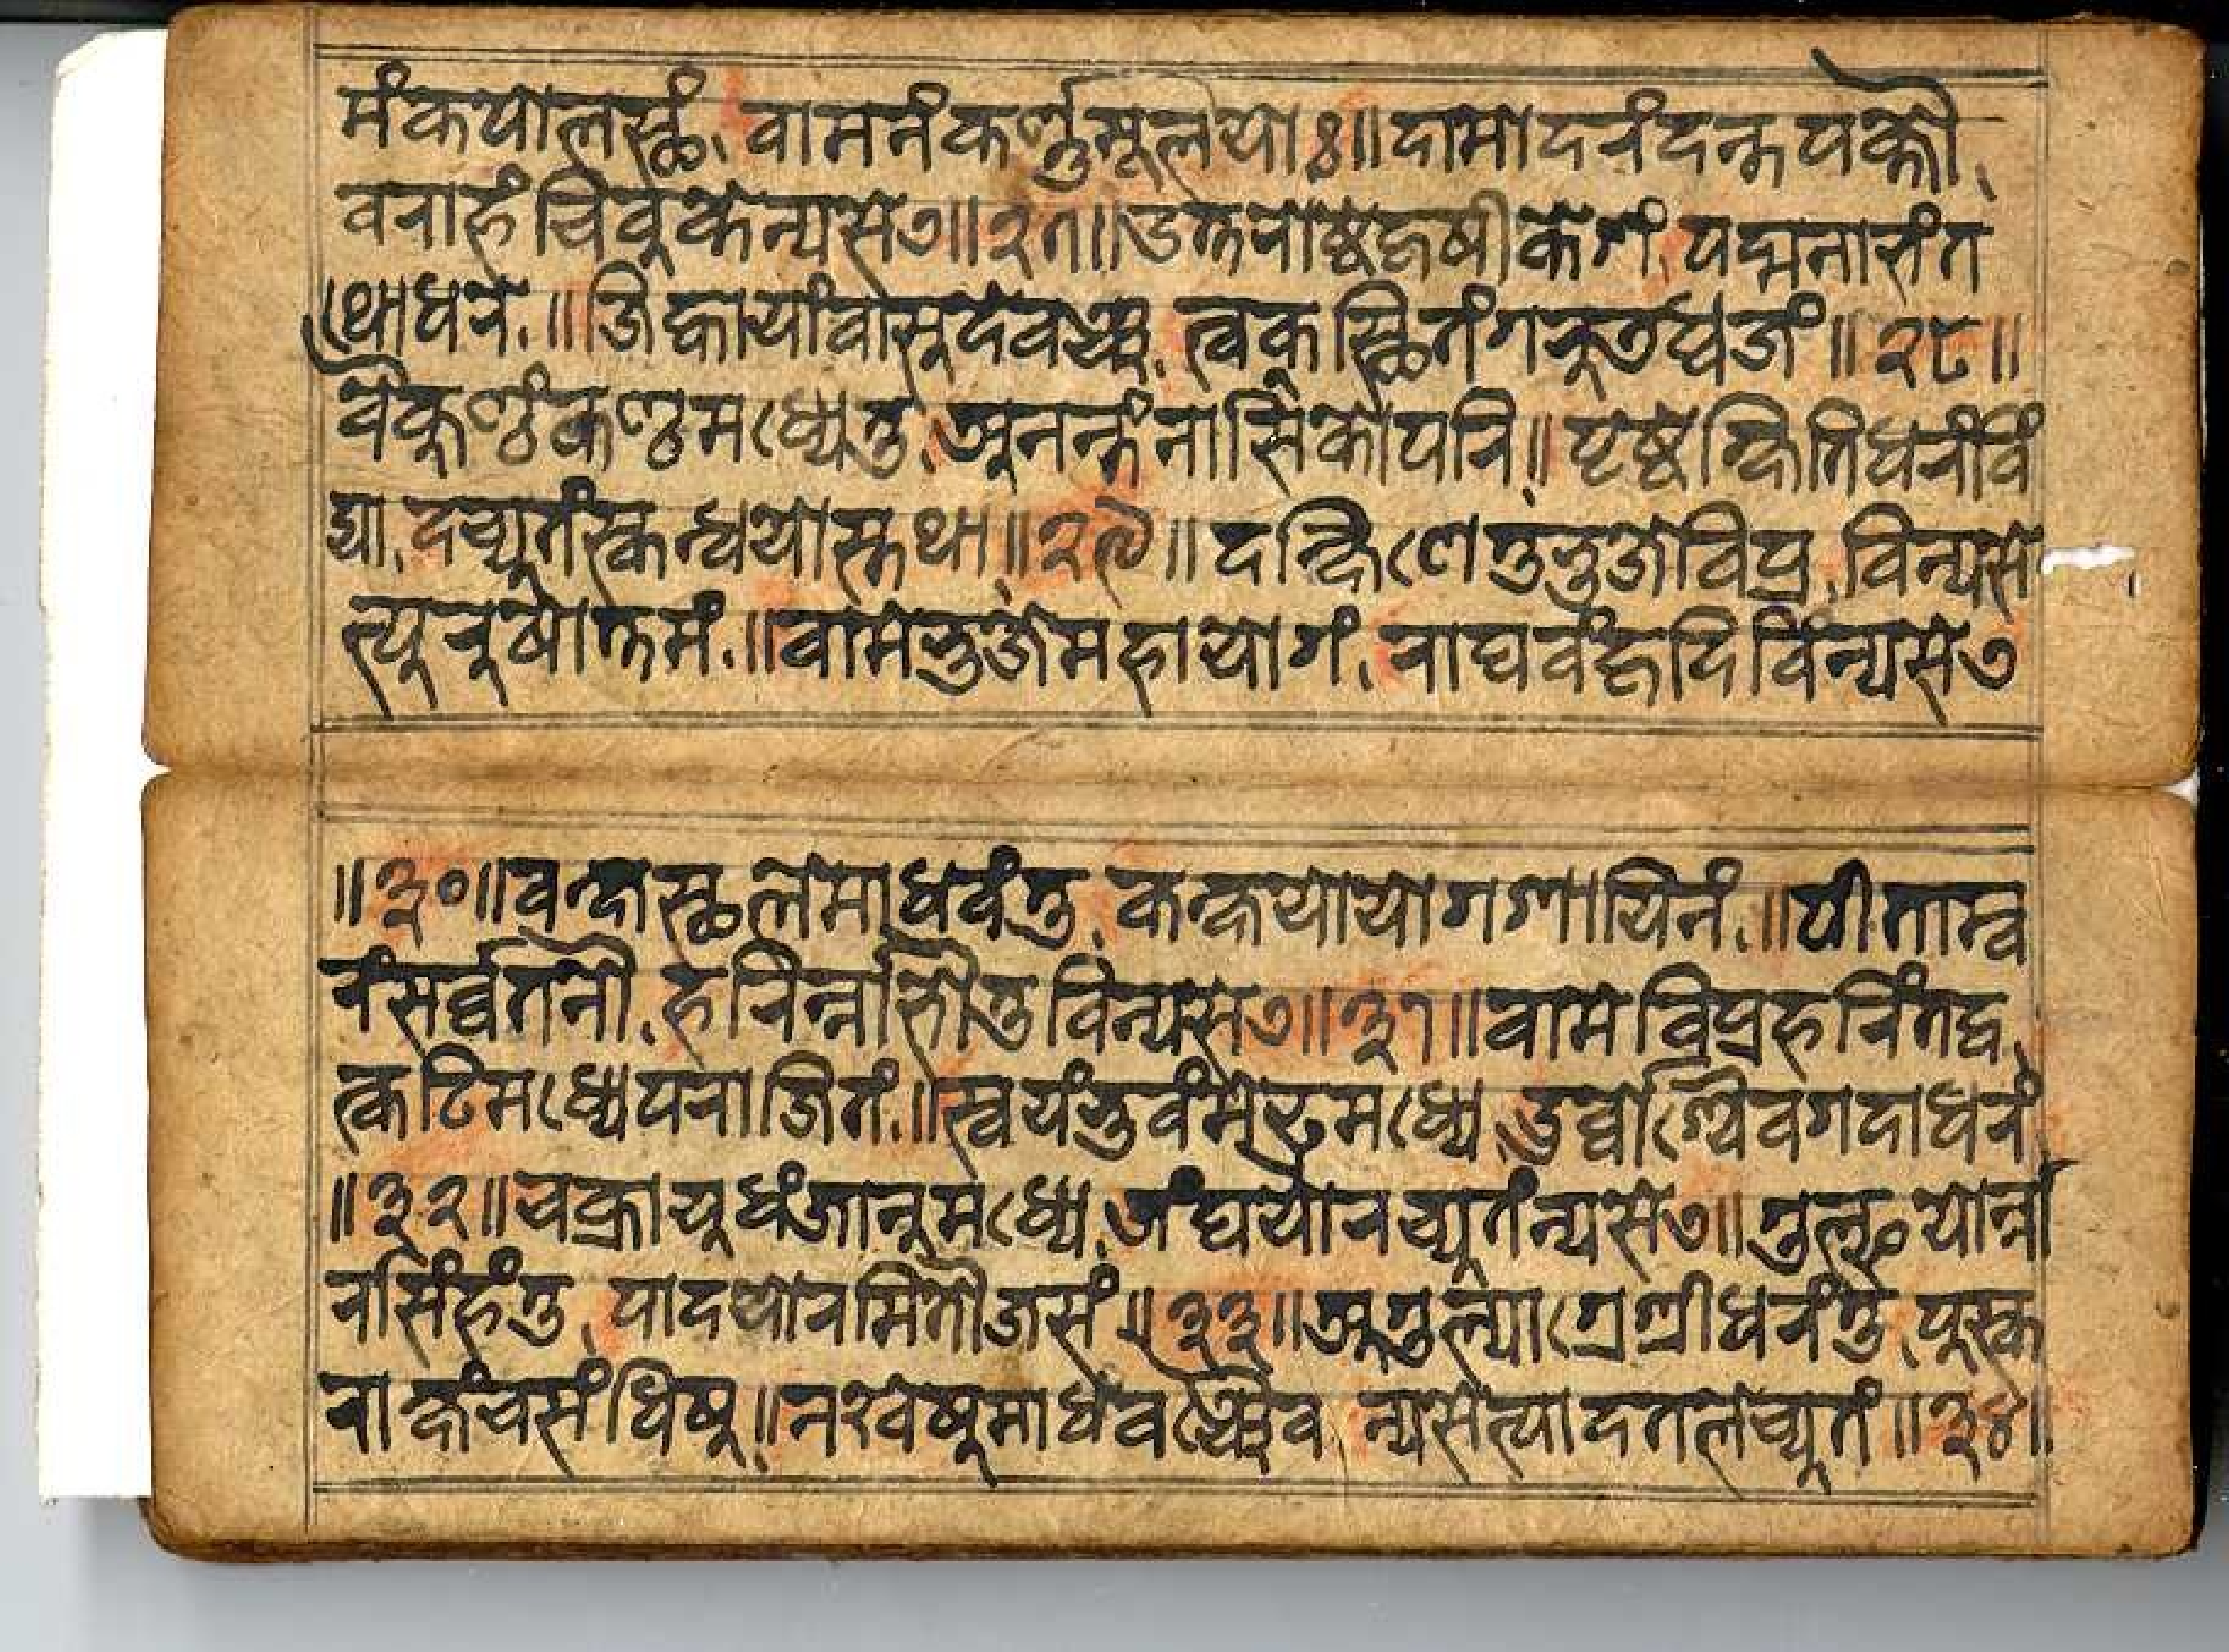 मं कपोलस्थं, वामनं कर्ण्णमूलयोः॥ दामोदरं दन्तपंक्तौ,
वराहं चिवुके न्यसेत्॥२७॥ उत्तरोष्ठे हृषीकेशं, पद्मनाभं त
थाधरे,॥ जिह्वायां वासुदेवञ्च, त्वक्स्थितं गरुडध्वजं॥२८॥
वैकुण्ठं कण्ठमध्ये तु, अनन्तं नासिकोपरि॥ पृष्ठे क्षितिधरं वि
द्या, दच्युतं स्कन्धयोस्तथा॥२९॥ दक्षिणे तु भुजे विप्र, विन्यसे
त्पुरुषोत्तमं,॥ वामे भुजे महायोगं, राघवं हृदि विन्यसेत्
॥३०॥ वक्षस्थले माधवं तु, कक्षयो योगशायिनं,॥ पीताम्व
रं सर्व्वतनौ, हरिन्नाभौ तु विन्यसेत्॥३१॥ वामे विप्र हरिं तद्व,
त्कटिमध्येपराजितं,॥ स्वयंभुवं मेढ्रमध्ये, उर्व्वोश्चैव गदाधरं
॥३२॥ चक्रायुधं जानुमध्ये, जंघयोरच्युतं न्यसेत्॥ गुल्फयोर्न्ना
रसिंहं तु, पादयोरमितौजसं॥३३॥ अङ्गुल्याग्रे श्रीधरं तु, पुस्क
राक्षं च संधिषु॥ नखेषु माधवञ्चैव न्यसेत्पादतलेच्युतं॥३४॥